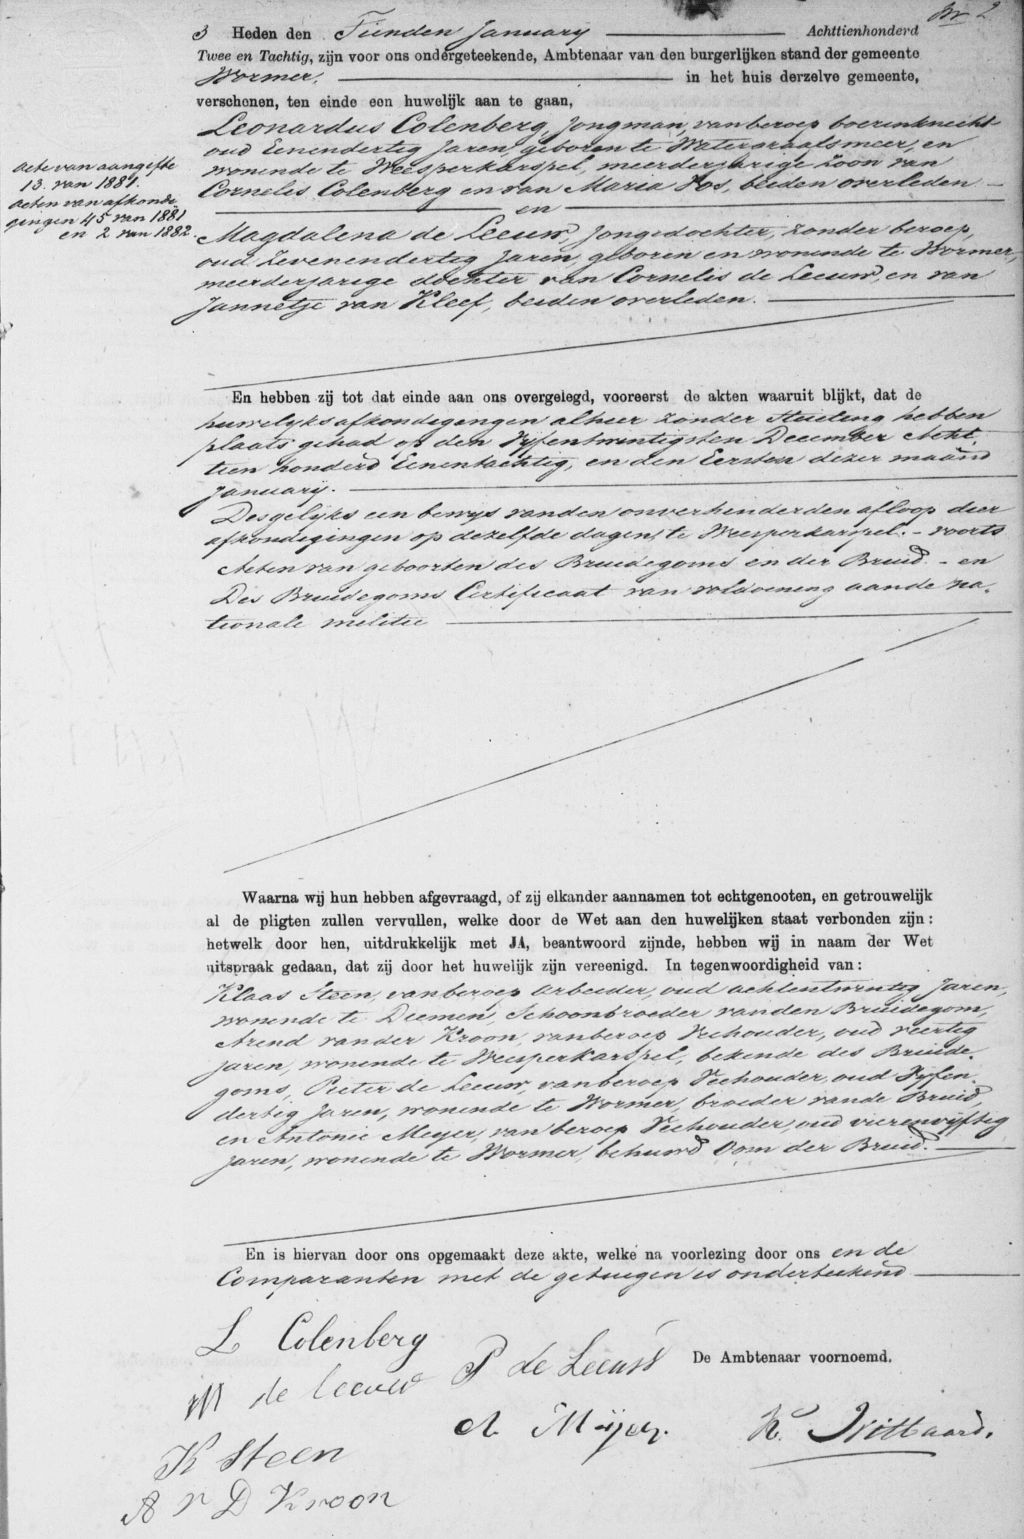 № 2
3 Heden den Tienden January Achttienhonderd
Twee en Tachtig, zijn voor ons ondergeteekende, Ambtenaar van den burgerlijken stand der gemeente
Wormer, in het huis derzelve gemeente,
verschenen, ten einde een huwelijk aan te gaan,
Leonardus Colenberg, Jongman, van beroep boerenknecht
oud Eenendertig Jaren, geboren te Watergraafsmeer, en
wonende te Weesperkarspel, meerderjarige zoon van
Cornelis Colenberg en van Maria Vos, beiden overleden
en
Magdalena de Leeuw, Jongedochter, zonder beroep,
oud Zevenendertig Jaren, geboren en wonende te Wormer,
meerderjarige dochter van Cornelis de Leeuw, en van
Jannetje van Kleef, beiden overleden.
Acte van aangifte
13. van 1881.
Acten van afkondi-
gingen 45 van 1881
en 2 van 1882.
En hebben zij tot dat einde aan ons overgelegd, vooreerst de akten waaruit blijkt, dat de
huwelyksafkondigingen alhier zonder Stuiting hebben
plaats gehad op den Vyfentwintigsten December Acht-
tien honderd Eenentachtig, en den Eersten dezer maand
January.
Desgelyks een bewys van den onverhinderden afloop dier
afkondigingen op dezelfde dagen, te Weesperkarspel. - voorts
Acten van geboorten des Bruidegoms en der Bruid. - en
Des Bruidegoms Certificaat van voldoening aan de na-
tionale militie
Waarna wij hun hebben afgevraagd, of zij elkander aannamen tot echtgenooten, en getrouwelijk
al de pligten zullen vervullen, welke door de Wet aan den huwelijken staat verbonden zijn:
hetwelk door hen, uitdrukkelijk met JA, beantwoord zijnde, hebben wij in naam der Wet
uitspraak gedaan, dat zij door het huwelijk zijn vereenigd. In tegenwoordigheid van:
Klaas Steen, van beroep Arbeider, oud achtentwintig Jaren,
wonende te Diemen, Schoonbroeder van den Bruidegom,
Arend van der Kroon, van beroep Veehouder, oud veertig
jaren, wonende te Weesperkarspel, bekende des Bruide-
goms, Pieter de Leeuw, van beroep Veehouder, oud Vyfen-
dertig Jaren, wonende te Wormer, broeder van de Bruid,
en Antonie Meyer, van beroep Veehouder, oud vierenvyftig
Jaren, wonende te Wormer, behuwd Oom der Bruid.
En is hiervan door ons opgemaakt deze akte, welke na voorlezing door ons en de
Comparanten met de getuigen is onderteekend
L Colenberg
M de Leeuw
P de Leeuw
De Ambtenaar voornoemd.
A Meijer.
K Steen
A v D Kroon